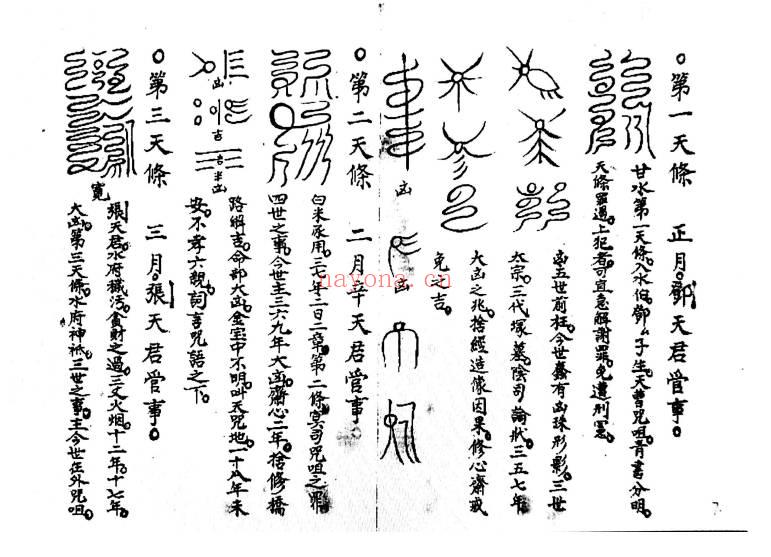 ○第一天條　正月。鄧天君管事。
甘水第一天條。入水伯鄧厶子生。天曹咒咀青書分明。
天條罪過。上犯者可宜急解謝罪。免遭刑憲。
五世前枉。今世有凶殊形影。三世
太宗。三代塚墓陰司論狀。三五七年
大凶之兆。捨經造像因果。修心齋戒
免之吉。
凶
凶
○第二天條　二月辛天君管事。
白米承用。三七年二日二章。第二條冥司咒咀之罪
四世之事。今世主三六九年大凶。齋心三年。捨修橋
路解吉。命部大凶。金宝中不明。叫天咒地。一十八年未
安。不孝六親。詞言咒語之下。
凶
吉
吉未凶
○第三天條　三月。張天君管事。
張天君水府穢污。貪財之過。三丈火烟。十二年。十七年。
大凶。第三天條。水府神祇。三世之事。主今世在外咒咀。
寬
nayona.cn.com